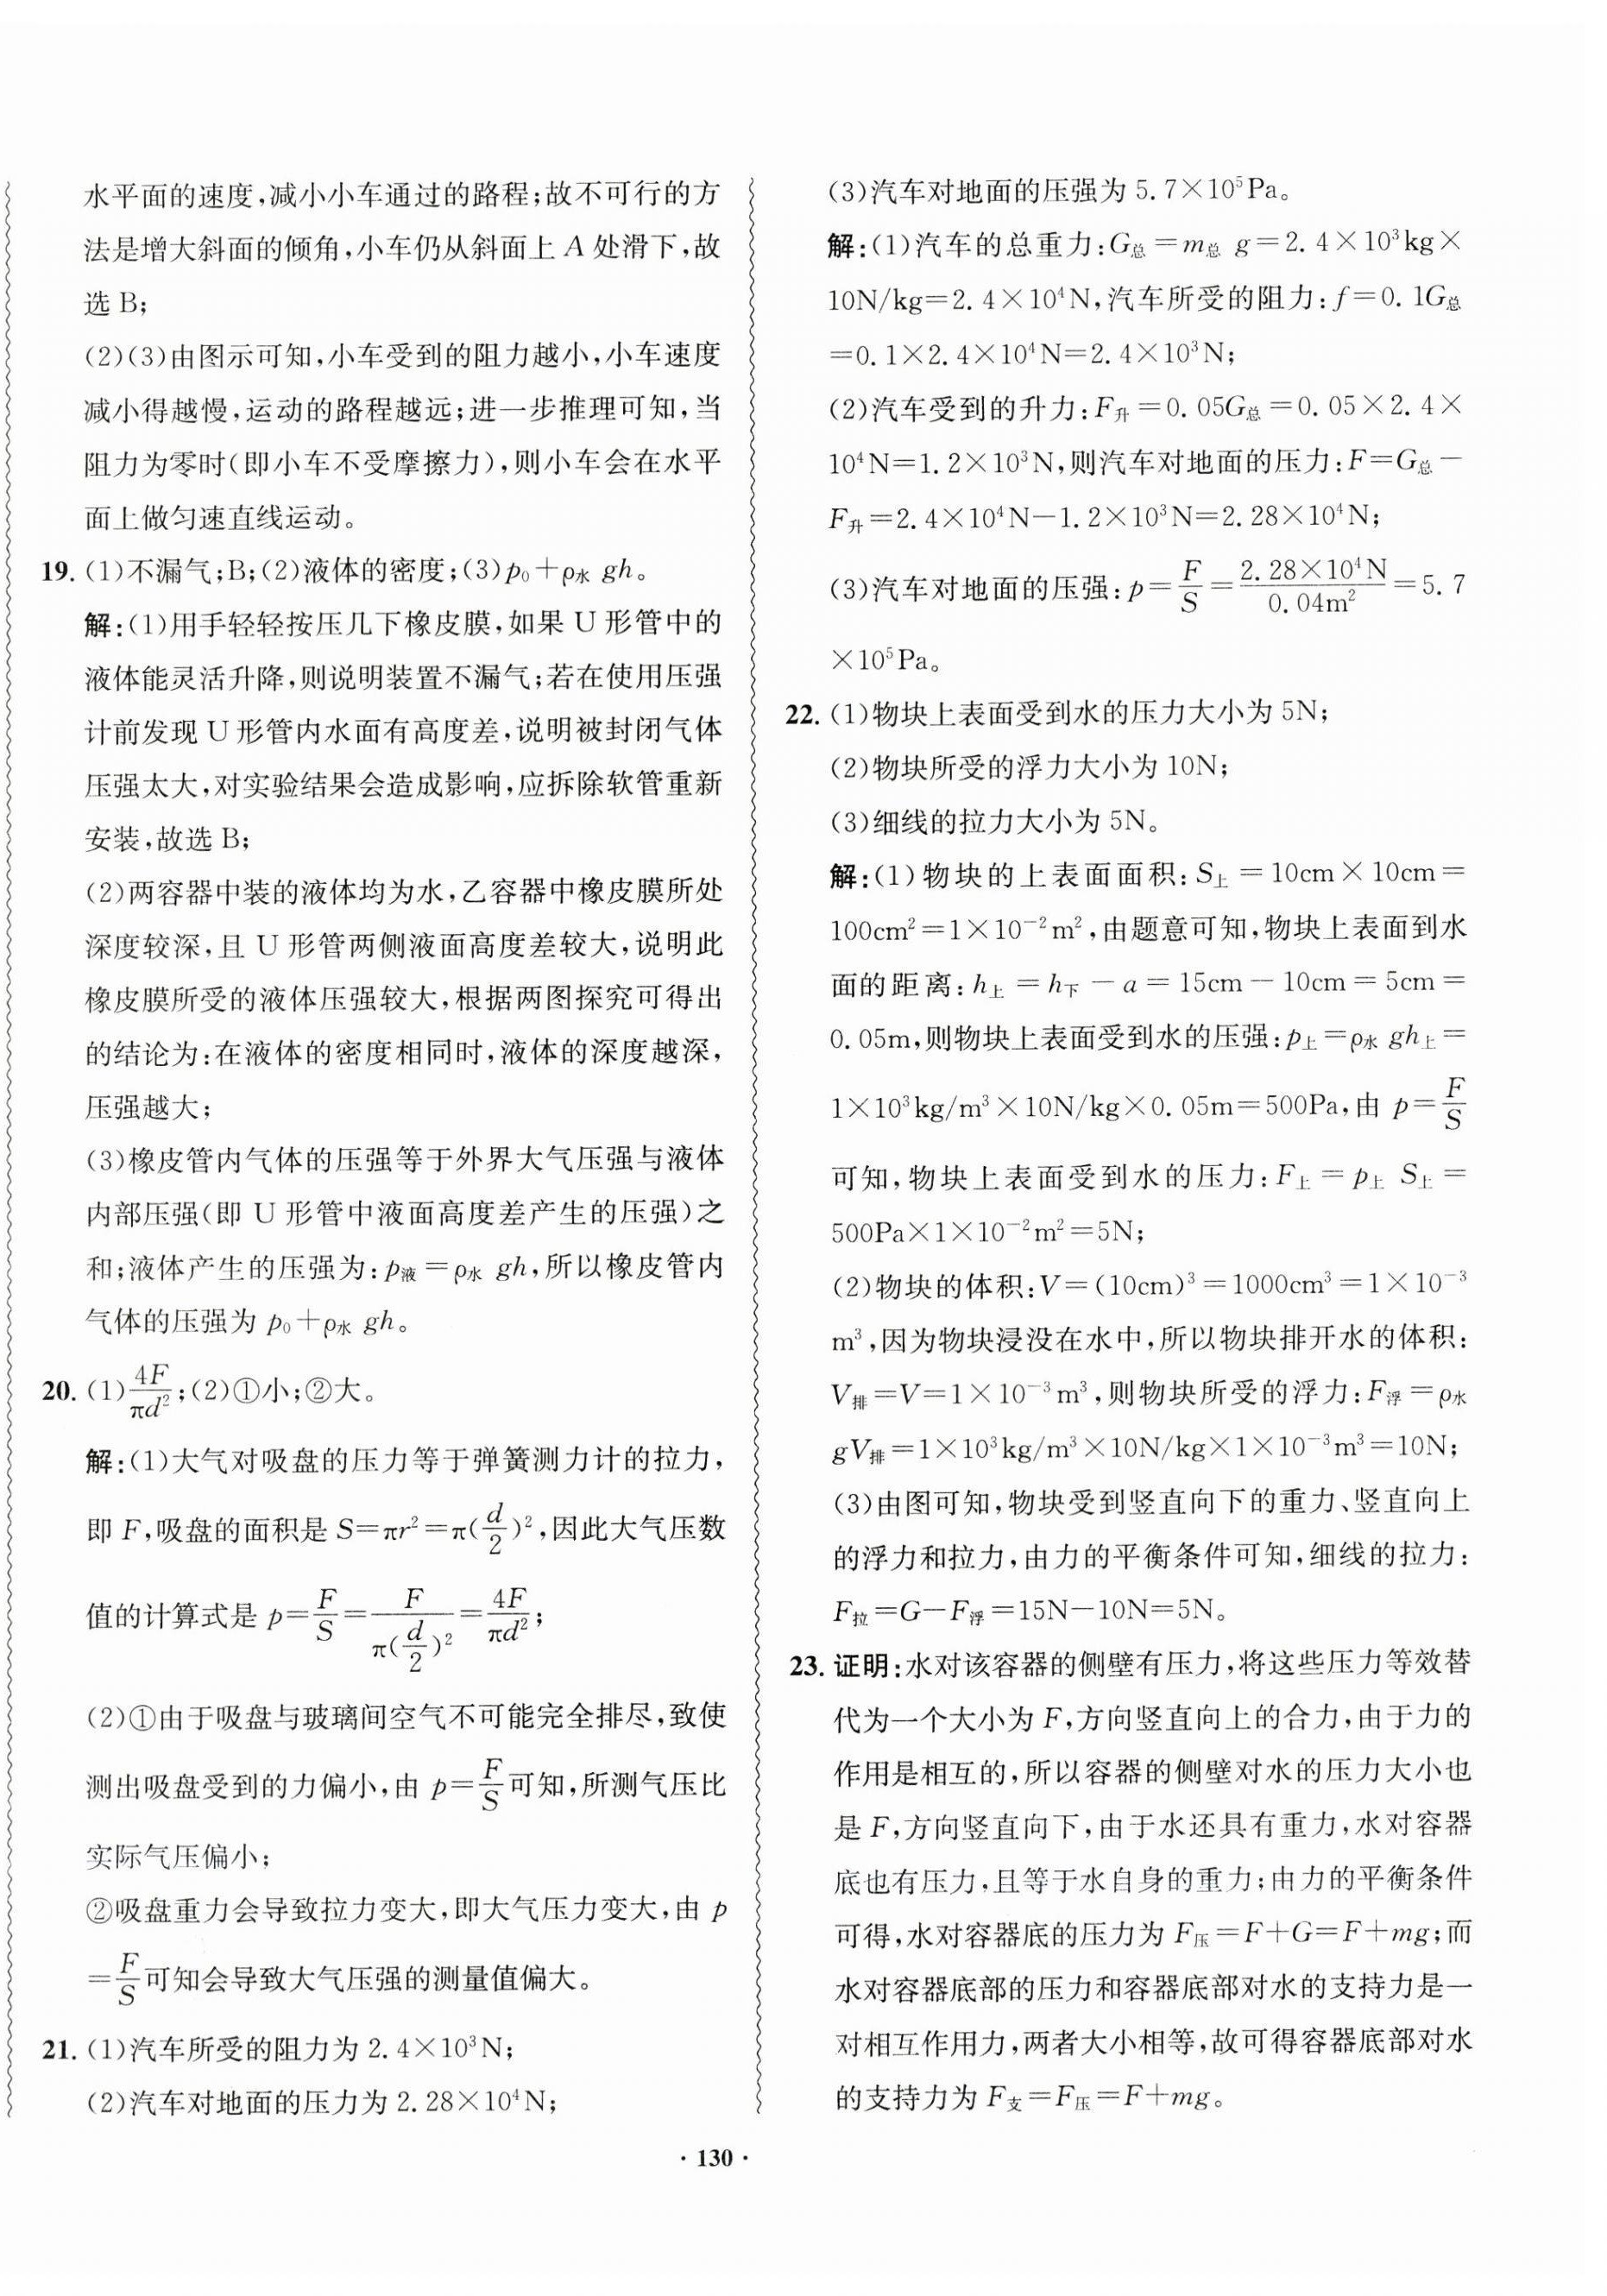 水平面的速度,减小小车通过的路程;故不可行的方
法是增大斜面的倾角,小车仍从斜面上 A 处滑下,故
选 B;
(2)(3)由图示可知,小车受到的阻力越小,小车速度
减小得越慢,运动的路程越远;进一步推理可知,当
阻力为零时(即小车不受摩擦力),则小车会在水平
面上做匀速直线运动。
19. (1)不漏气;B;(2)液体的密度;(3)p₀+ρ水 gh。
解:(1)用手轻轻按压几下橡皮膜,如果 U 形管中的
液体能灵活升降,则说明装置不漏气;若在使用压强
计前发现 U 形管内水面有高度差,说明被封闭气体
压强太大,对实验结果会造成影响,应拆除软管重新
安装,故选 B;
(2)两容器中装的液体均为水,乙容器中橡皮膜所处
深度较深,且 U 形管两侧液面高度差较大,说明此
橡皮膜所受的液体压强较大,根据两图探究可得出
的结论为:在液体的密度相同时,液体的深度越深,
压强越大;
(3)橡皮管内气体的压强等于外界大气压强与液体
内部压强(即 U 形管中液面高度差产生的压强)之
和;液体产生的压强为:p液=ρ水 gh,所以橡皮管内
气体的压强为 p₀+ρ水 gh。
20. (1)4F/πd²;(2)①小;②大。
解:(1)大气对吸盘的压力等于弹簧测力计的拉力,
即 F,吸盘的面积是 S=πr²=π(d/2)²,因此大气压数
值的计算式是 p=F/S=F/π(d/2)²=4F/πd²;
(2)①由于吸盘与玻璃间空气不可能完全排尽,致使
测出吸盘受到的力偏小,由 p=F/S可知,所测气压比
实际气压偏小;
②吸盘重力会导致拉力变大,即大气压力变大,由 p
=F/S可知会导致大气压强的测量值偏大。
21. (1)汽车所受的阻力为 2.4×10³N;
(2)汽车对地面的压力为 2.28×10⁴N;
(3)汽车对地面的压强为 5.7×10⁵Pa。
解:(1)汽车的总重力:G总=m总 g=2.4×10³kg×
10N/kg=2.4×10⁴N,汽车所受的阻力:f=0.1G总
=0.1×2.4×10⁴N=2.4×10³N;
(2)汽车受到的升力:F升=0.05G总=0.05×2.4×
10⁴N=1.2×10³N,则汽车对地面的压力:F=G总-
F升=2.4×10⁴N-1.2×10³N=2.28×10⁴N;
(3)汽车对地面的压强:p=F/S=2.28×10⁴N/0.04m²=5.7
×10⁵Pa。
22. (1)物块上表面受到水的压力大小为 5N;
(2)物块所受的浮力大小为 10N;
(3)细线的拉力大小为 5N。
解:(1)物块的上表面面积:S上=10cm×10cm=
100cm²=1×10⁻²m²,由题意可知,物块上表面到水
面的距离:h上=h下-a=15cm-10cm=5cm=
0.05m,则物块上表面受到水的压强:p上=ρ水 gh上=
1×10³kg/m³×10N/kg×0.05m=500Pa,由 p=F/S
可知,物块上表面受到水的压力:F上=p上 S上=
500Pa×1×10⁻²m²=5N;
(2)物块的体积:V=(10cm)³=1000cm³=1×10⁻³
m³,因为物块浸没在水中,所以物块排开水的体积:
V排=V=1×10⁻³m³,则物块所受的浮力:F浮=ρ水
gV排=1×10³kg/m³×10N/kg×1×10⁻³m³=10N;
(3)由图可知,物块受到竖直向下的重力、竖直向上
的浮力和拉力,由力的平衡条件可知,细线的拉力:
F拉=G-F浮=15N-10N=5N。
23. 证明:水对该容器的侧壁有压力,将这些压力等效替
代为一个大小为 F,方向竖直向上的合力,由于力的
作用是相互的,所以容器的侧壁对水的压力大小也
是 F,方向竖直向下,由于水还具有重力,水对容器
底也有压力,且等于水自身的重力;由力的平衡条件
可得,水对容器底的压力为 F压=F+G=F+mg;而
水对容器底部的压力和容器底部对水的支持力是一
对相互作用力,两者大小相等,故可得容器底部对水
的支持力为 F支=F压=F+mg。
· 130 ·